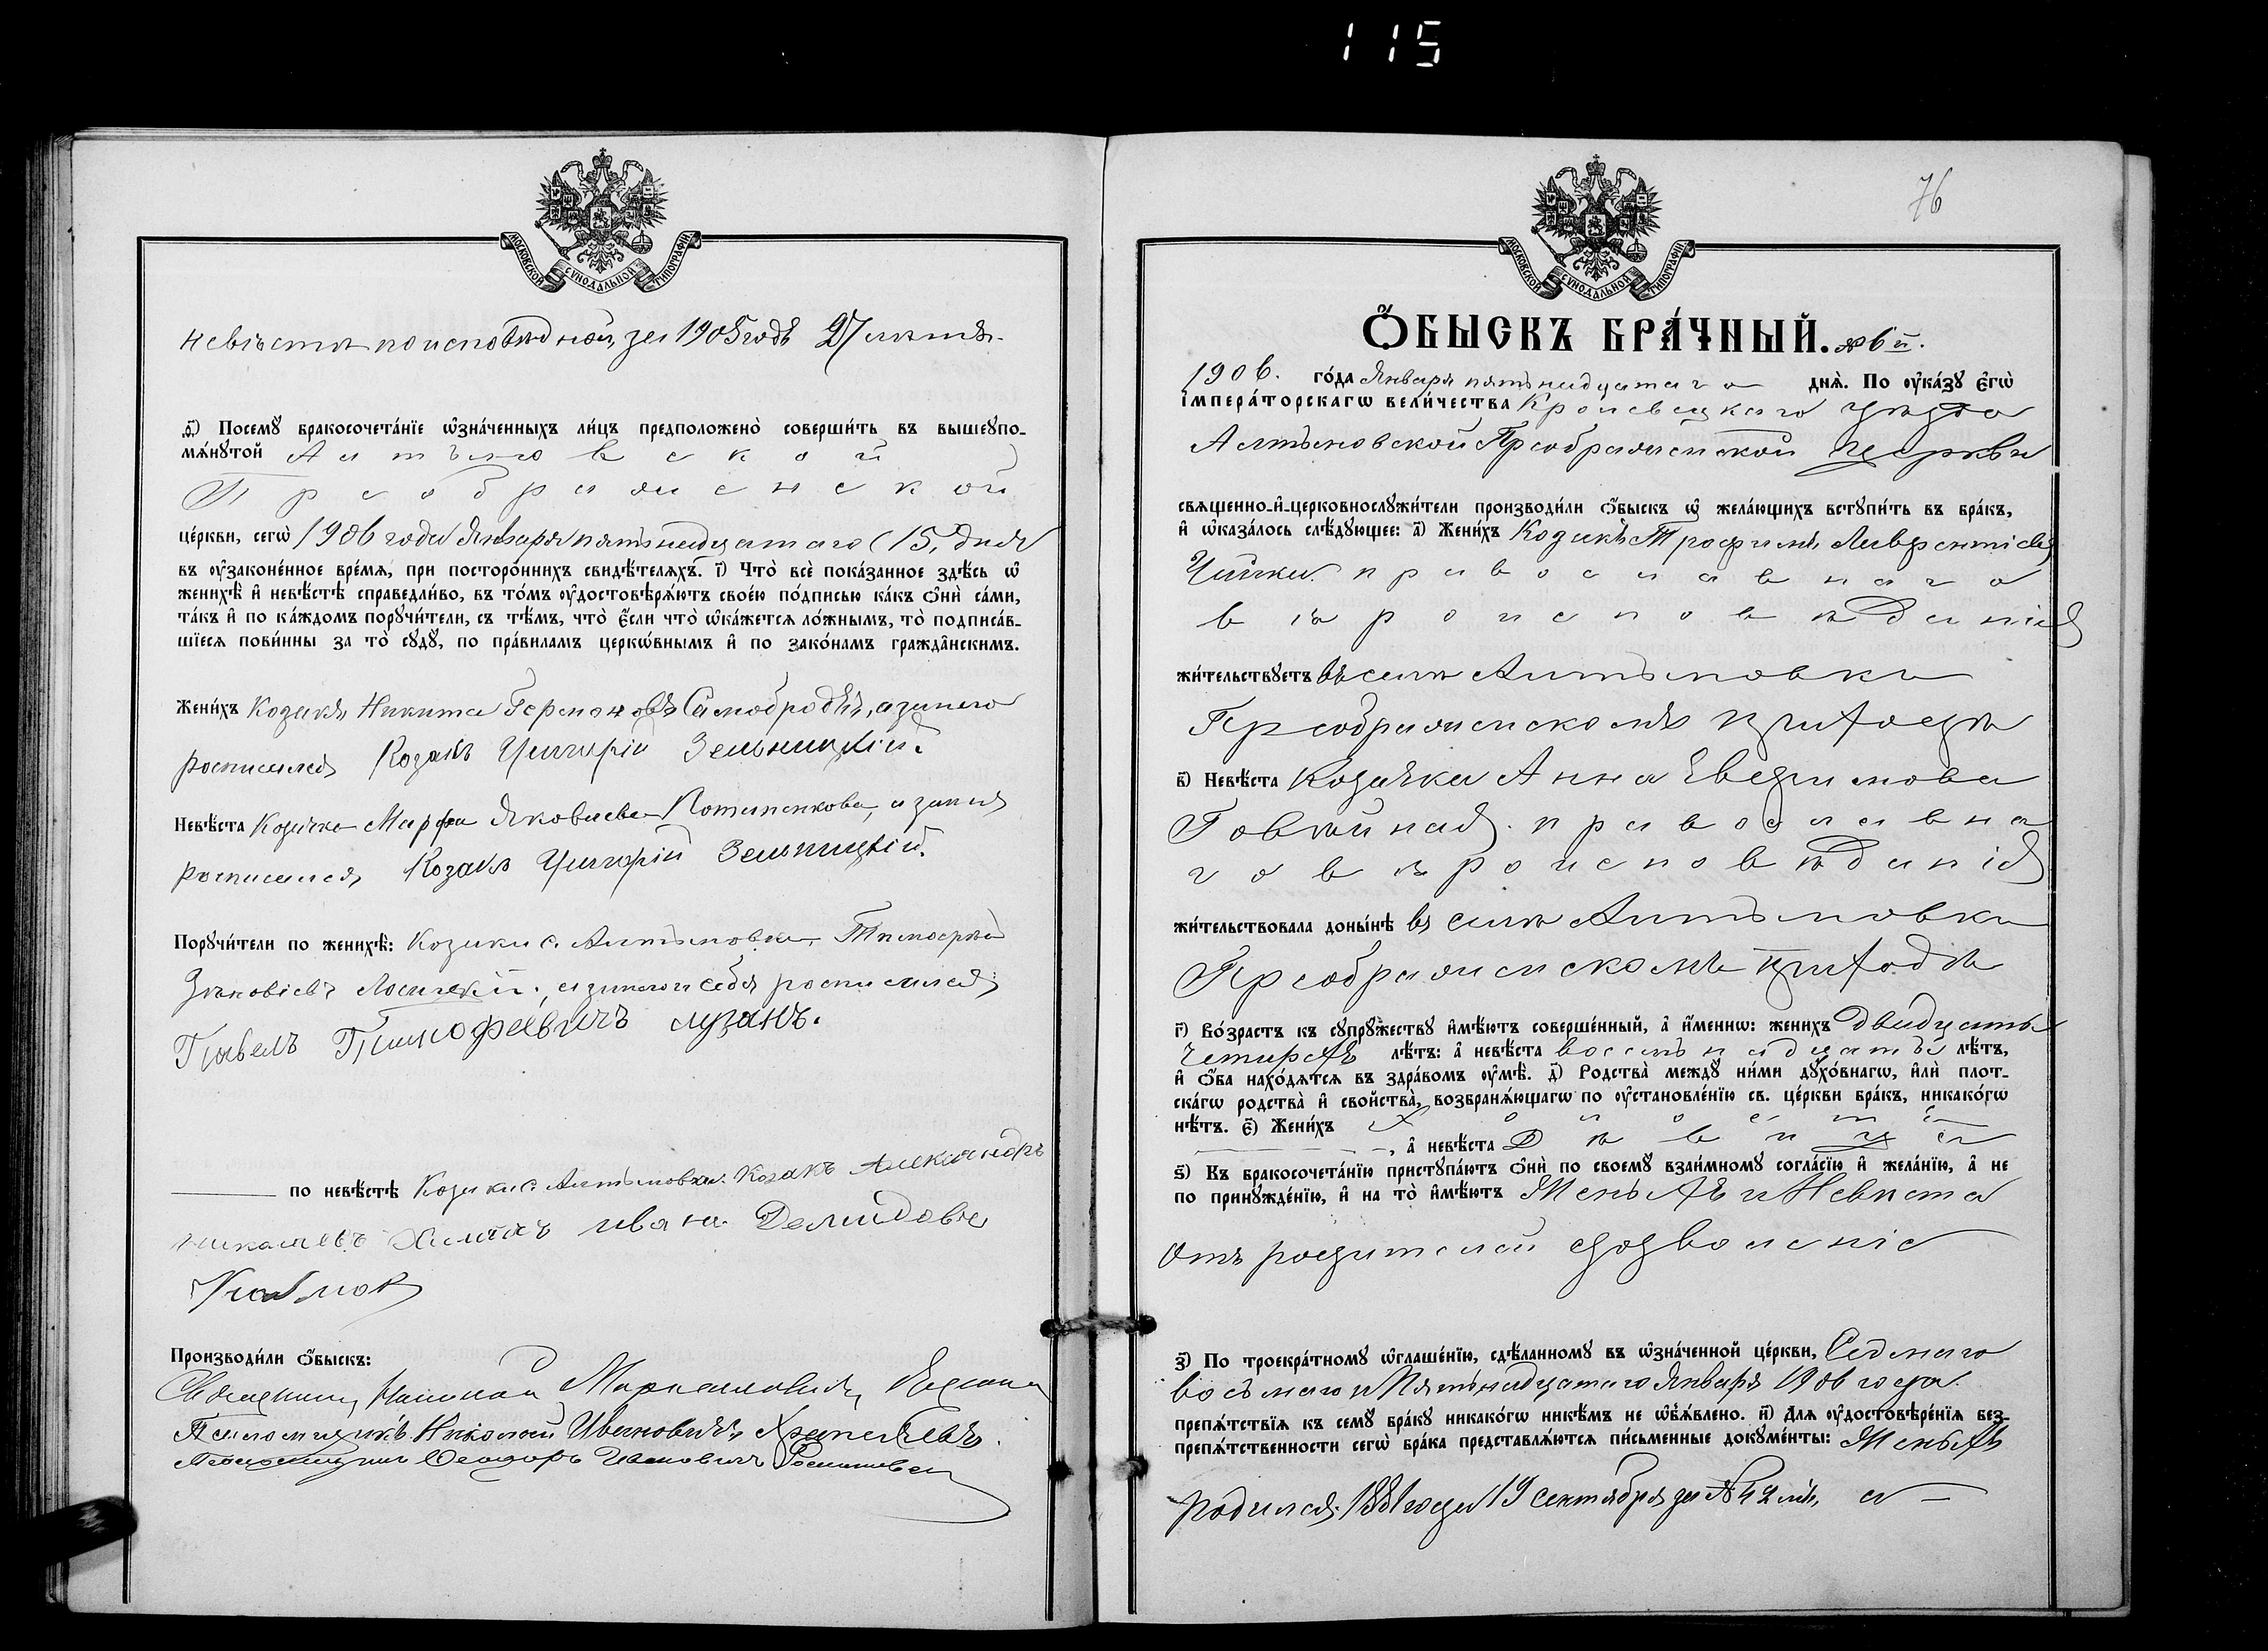 115
МОСКОВСКОЙ СѴНОДАЛЬНОЙ ТИПОГРАФІИ.
невѣста по исповѣдной за 1905 годъ 27 лѣтъ.
ѳ҃) Посемꙋ бракосочета́нїе ѡ҆зна́ченныхъ ли́цъ предположено̀ соверши́ть въ вышеꙋпо-
мѧ́нꙋтой Алтыновской
Преображенской
це́ркви, сегѡ̀ 1906 года Января пятьнадцатаго (15) дня
въ ᲂу҆зако́нѣнное вре́мѧ, при посторо́ннихъ свидѣ́телѧхъ. і҃) Что̀ всѐ пока́занное здѣ́сь ѡ҆
женихѣ̀ и҆ невѣ́стѣ справедли́во, въ то́мъ ᲂу҆достовѣрѧ́ютъ свое́ю по́дписью ка́къ ѻ҆нѝ са́ми,
та́къ и҆ по ка́ждомъ порꙋчи́тели, съ тѣ́мъ, что̀ є҆́сли что̀ ѡ҆ка́жетсѧ ло́жнымъ, то̀ подписа́в-
шїесѧ пови́нны за то̀ сꙋдꙋ̀, по пра́виламъ церкѡ́внымъ и҆ по зако́намъ гражда̑нскимъ.
Жени́хъ Козакъ Никита Самобродъ, а за него
росписался Козакъ Григорій Зельницкій.
Невѣ́ста Козачка Марфа Яковлева Потапенкова, а за нея
росписался Козакъ Григорій Зельницкій.
Порꙋчи́тели по женихѣ̀: Козаки с. Алтыновки Тимофей
и за себя росписался
Павелъ Тимофеевичъ лузанъ.
по невѣ́стѣ Козаки с. Алтыновки. Козакъ Александръ
николаевъ ивана Демидовъ
Производи́ли ѻ҆́быскъ:
Священникъ Николай
Псаломщикъ Николай Ивановичъ
Псаломщикъ Ѳеодоръ Ивановичъ
76
МОСКОВСКОЙ СѴНОДАЛЬНОЙ ТИПОГРАФІИ.
Ѻ҆́БЫСКЪ БРА́ЧНЫЙ. № 6й.
1906. го́да Января пятьнадцатаго днѧ̀. По ᲂу҆ка́зꙋ є҆гѡ̀
і҆мпера́торскагѡ вели́чества Кролевецкаго уѣзда
Алтыновской Преображенской церкви
свѧщенно-и҆-церковнослꙋжи́тели производи́ли ѻ҆́быскъ ѡ҆ жела́ющихъ встꙋпи́ть въ бра́къ,
и҆ ѡ҆каза́лось слѣ́дꙋющее: а҃) Жени́хъ Козакъ Трофимъ Лаврентіевъ
Чайка. православнаго
вѣроисповѣданія
жи́тельствꙋетъ въ селѣ Алтыновки
Преображенскомъ приходѣ
в҃) Невѣ́ста Козачка Анна Евдокимова
православна
го вѣроисповѣданія
жи́тельствовала доны́нѣ въ селѣ Алтыновки
Преображенскомъ приходѣ
г҃) Во́зрастъ къ сꙋпрꙋ́жествꙋ и҆мѣ́ютъ соверше́нный, а҆ и҆́меннѡ: жени́хъ Двадцать
четырехъ лѣ́тъ: а҆ невѣ́ста восемьнадцатый лѣ́тъ,
и҆ ѻ҆́ба нахо́дѧтсѧ въ здра́вомъ ᲂу҆мѣ̀. д҃) Родства̀ междꙋ̀ ни́ми дꙋхо́внагѡ, и҆лѝ плот-
ска́гѡ родства̀ и҆ сво́йства̀, возбранѧ́ющагѡ по ᲂу҆становле́нїю св. це́ркви бра́къ, никако́гѡ
нѣ́тъ. є҃) Жени́хъ Холостъ
, а҆ невѣ́ста Дѣвица
ѕ҃) Къ бракосочета́нїю пристꙋпа́ютъ ѻ҆нѝ по своемꙋ̀ взаи́мномꙋ согла́сїю и҆ жела́нїю, а҆ не
по принꙋжде́нїю, и҆ на то̀ и҆мѣ́ютъ Женыхъ и Невѣста
отъ родителей дозволеніе
з҃) По троекра́тномꙋ ѡ҆глаше́нїю, сдѣ́ланномꙋ въ ѡ҆зна́ченной це́ркви, Седмаго
восьмаго и Пятьнадцатаго Января 1906 года.
препѧ́тствїѧ къ семꙋ̀ бра́кꙋ никако́гѡ никѣ́мъ не ѡ҆б̾ѧ́влено. и҃) Длѧ ᲂу҆достовѣре́нїѧ без-
препѧ́тственности сегѡ̀ бра́ка представлѧ́ютсѧ пи́сьменные докꙋме́нты: Женыхъ
родился 1881 года 19 сентября за № 42 мъ, а